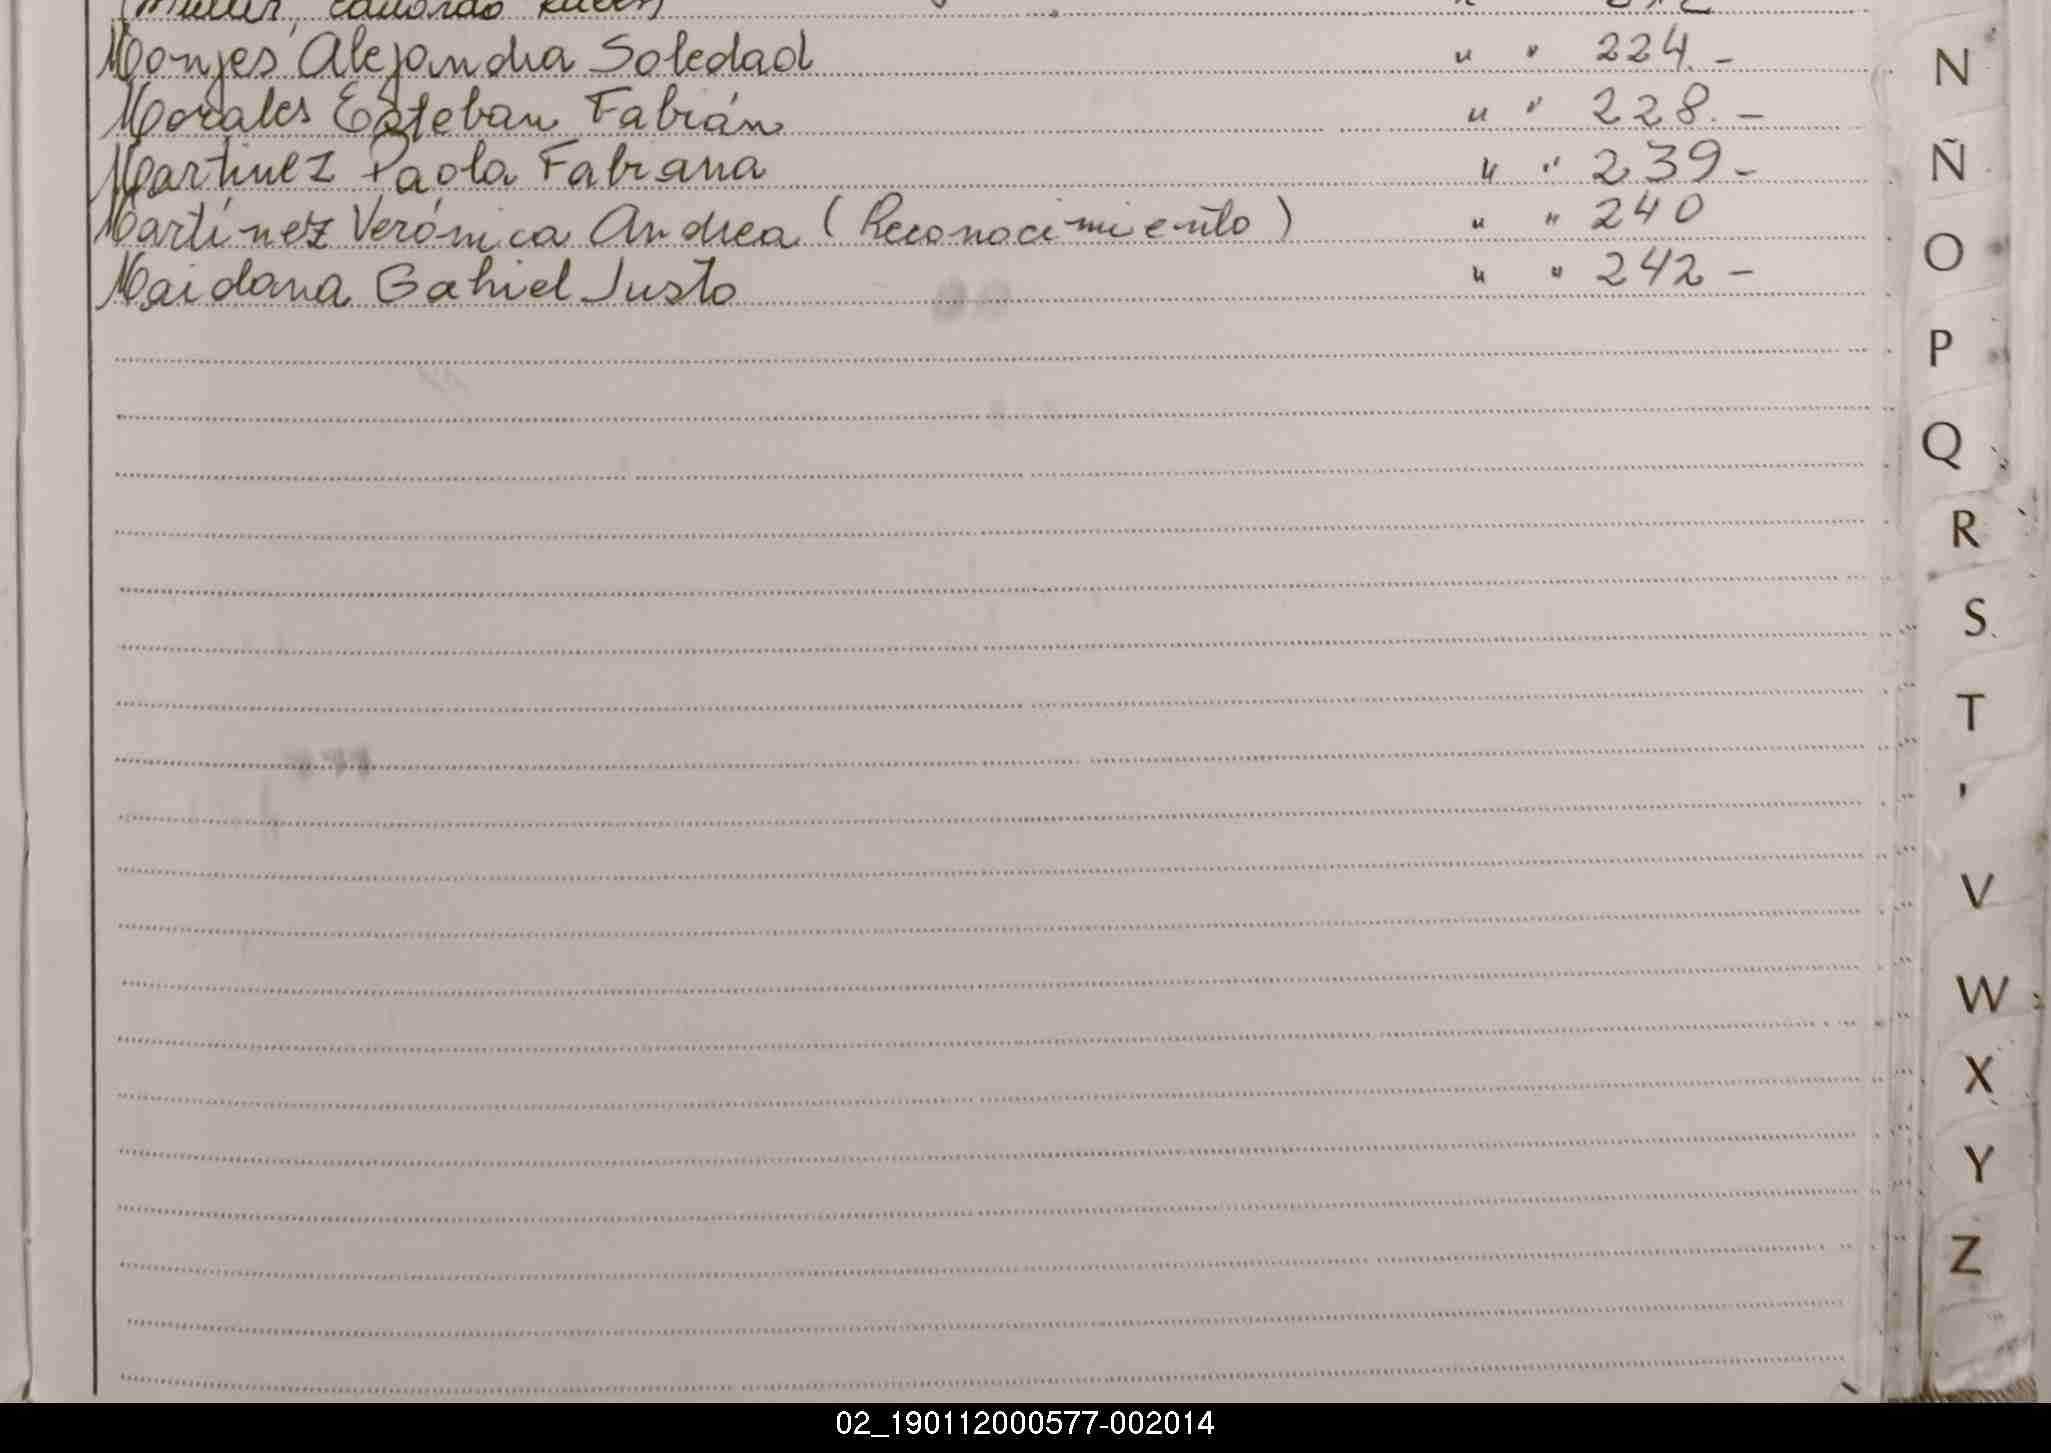 Eduardo
Monjes Alejandra Soledad " " 224.-
Morales Esteban Fabián " " 228.-
Martinez Paola Fabiana " " 239-
Martínez Verónica Andrea (Reconocimiento) " " 240
Maidana Gabriel Justo " " 242-
N
Ñ
O
P
Q
R
S
T
V
W
X
Y
Z
02_190112000577-002014